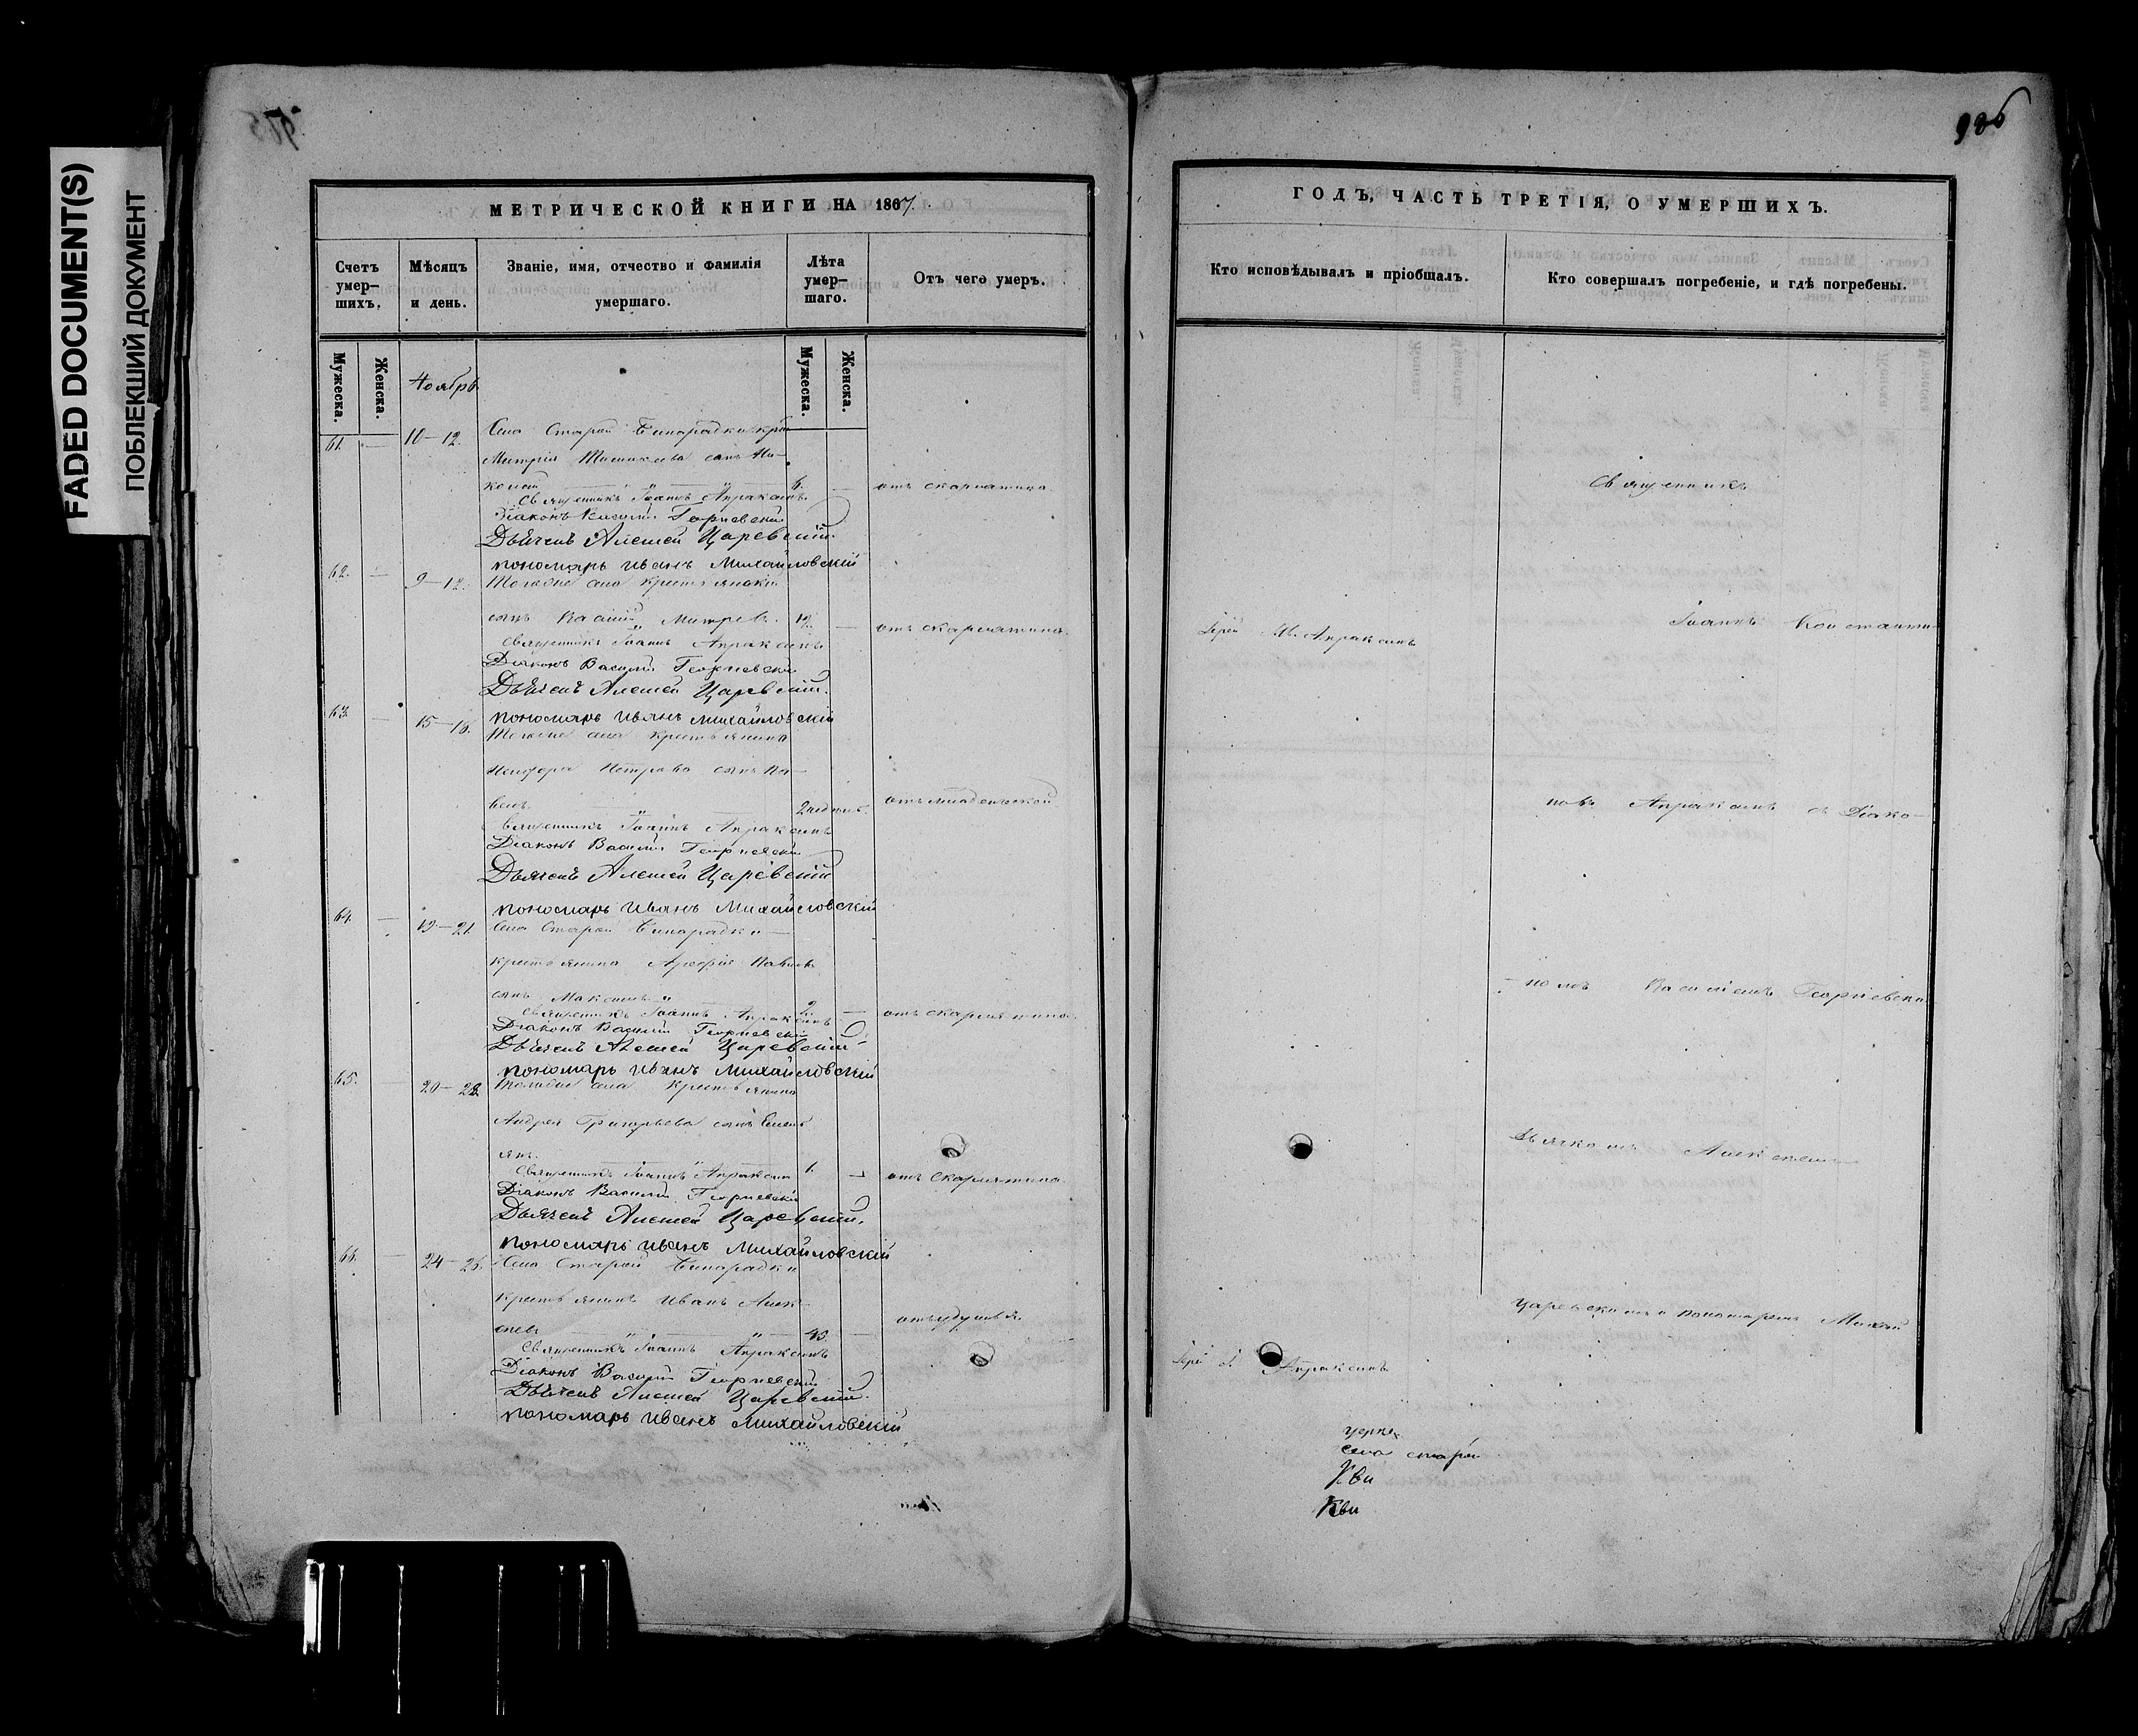 FADED DOCUMENT(S)
ПОБЛЕКШИЙ ДОКУМЕНТ
986
МЕТРИЧЕСКОЙ КНИГИ НА 1867.
Счетъ умер-шихъ.
Мѣсяцъ и день.
Званіе, имя, отчество и фамилія умершаго.
Лѣта умер-шаго.
Отъ чего умеръ.
Мужеска.
Женска.
Ноябрь
Мужеска.
Женска.
61. — 10—12. Села Старой Бинарадки кр
Митрія сынъ Ни-
колай — " — " 6. — отъ скарлатина.
Священникъ Іоаннъ Апраксинъ
Діаконъ Василій Георгіевскій
Дьячекъ Алексей Царевскій
пономарь Иванъ Михайловскій
62. — 9—12. Тогоже села крестьянскій
сынъ Василій Митрев. 12. — отъ скарлатина.
Священникъ Іоаннъ Апраксинъ
Діаконъ Василій Георгіевскій
Дьячекъ Алексей Царевскій.
пономарь Иванъ Михайловскій
63. — 15—16. Тогоже села крестьянина
Петрова сынъ Па-
велъ — " 2 недѣль отъ младенческой
Священникъ Іоаннъ Апраксинъ
Діаконъ Василій Георгіевскій
Дьячекъ Алексей Царевскій
пономарь Иванъ Михайловскій
64. — 19—21. Села Старой Бинарадки —
крестьянина
сынъ Максимъ " — 2. — отъ скарлатина.
Священникъ Іоаннъ Апраксинъ
Діаконъ Василій Георгіевскій
Дьячекъ Алексей Царевскій
пономарь Иванъ Михайловскій
65. 20—22. Тогоже села крестьянина
Андрея Григорьева сынъ Емель
янъ. — " 1. — отъ скарлатина.
Священникъ Іоаннъ Апраксинъ
Діаконъ Василій Георгіевскій
Дьячекъ Алексей Царевскій.
пономарь Иванъ Михайловскій
66. — 24—26. Села Старой Бинарадки
крестьянинъ Иванъ Алек-
сеевъ — " — " — 43. — отъ удушья
Священникъ Іоаннъ Апраксинъ
Діаконъ Василій Георгіевскій
Дьячекъ Алексей Царевскій.
пономарь Иванъ Михайловскій
ГОДЪ, ЧАСТЬ ТРЕТІЯ, О УМЕРШИХЪ.
Кто исповѣдывалъ и пріобщалъ.
Кто совершалъ погребеніе, и гдѣ погребены.
Священникъ
Іерей Ив. Апраксинъ
Іоаннъ Константи-
новъ Апраксинъ съ Діако-
номъ Василіемъ Георгіевски
Дьячкомъ Алексеемъ
Царевскимъ и пономаремъ Михай
Іерей І. Апраксинъ
села старой